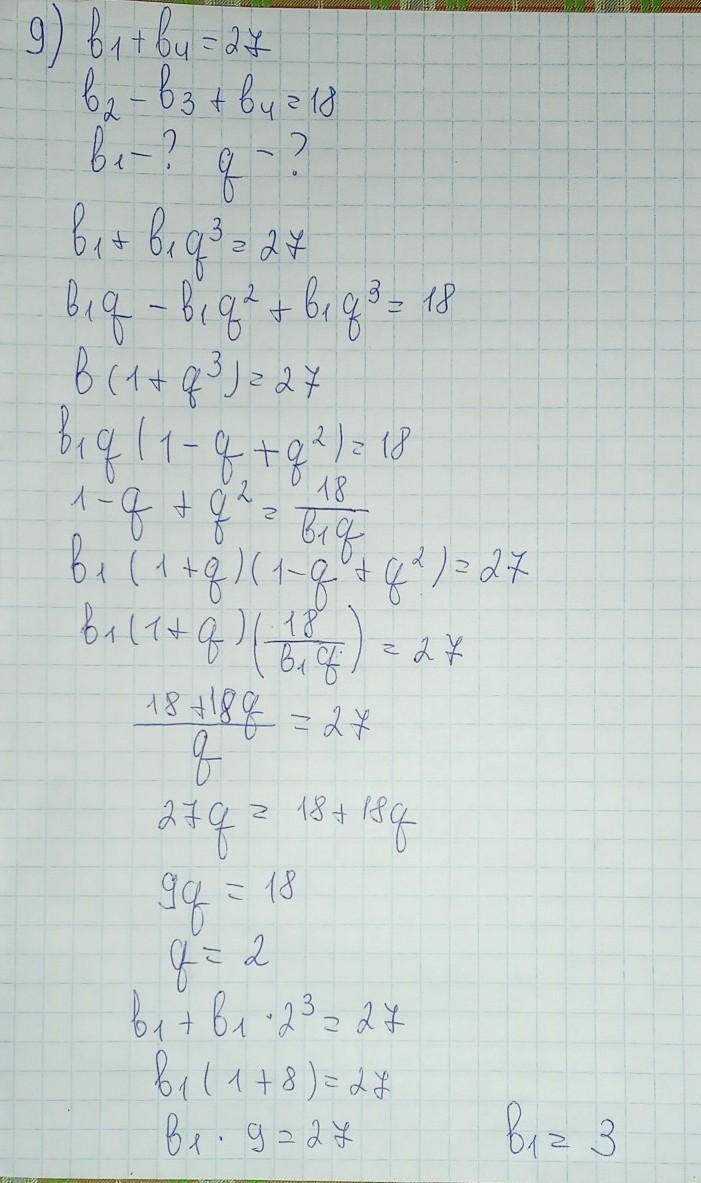 9) в₁ + в₄ = 27
в₂ - в₃ + в₄ = 18
в₁ - ? q - ?
в₁ + в₁q³ = 27
в₁q - в₁q² + в₁q³ = 18
в(1 + q³) = 27
в₁q(1 - q + q²) = 18
1 - q + q² = 18/(в₁q)
в₁(1 + q)(1 - q + q²) = 27
в₁(1 + q)(18/(в₁q)) = 27
(18 + 18q)/q = 27
27q = 18 + 18q
9q = 18
q = 2
в₁ + в₁ · 2³ = 27
в₁(1 + 8) = 27
в₁ · 9 = 27 в₁ = 3